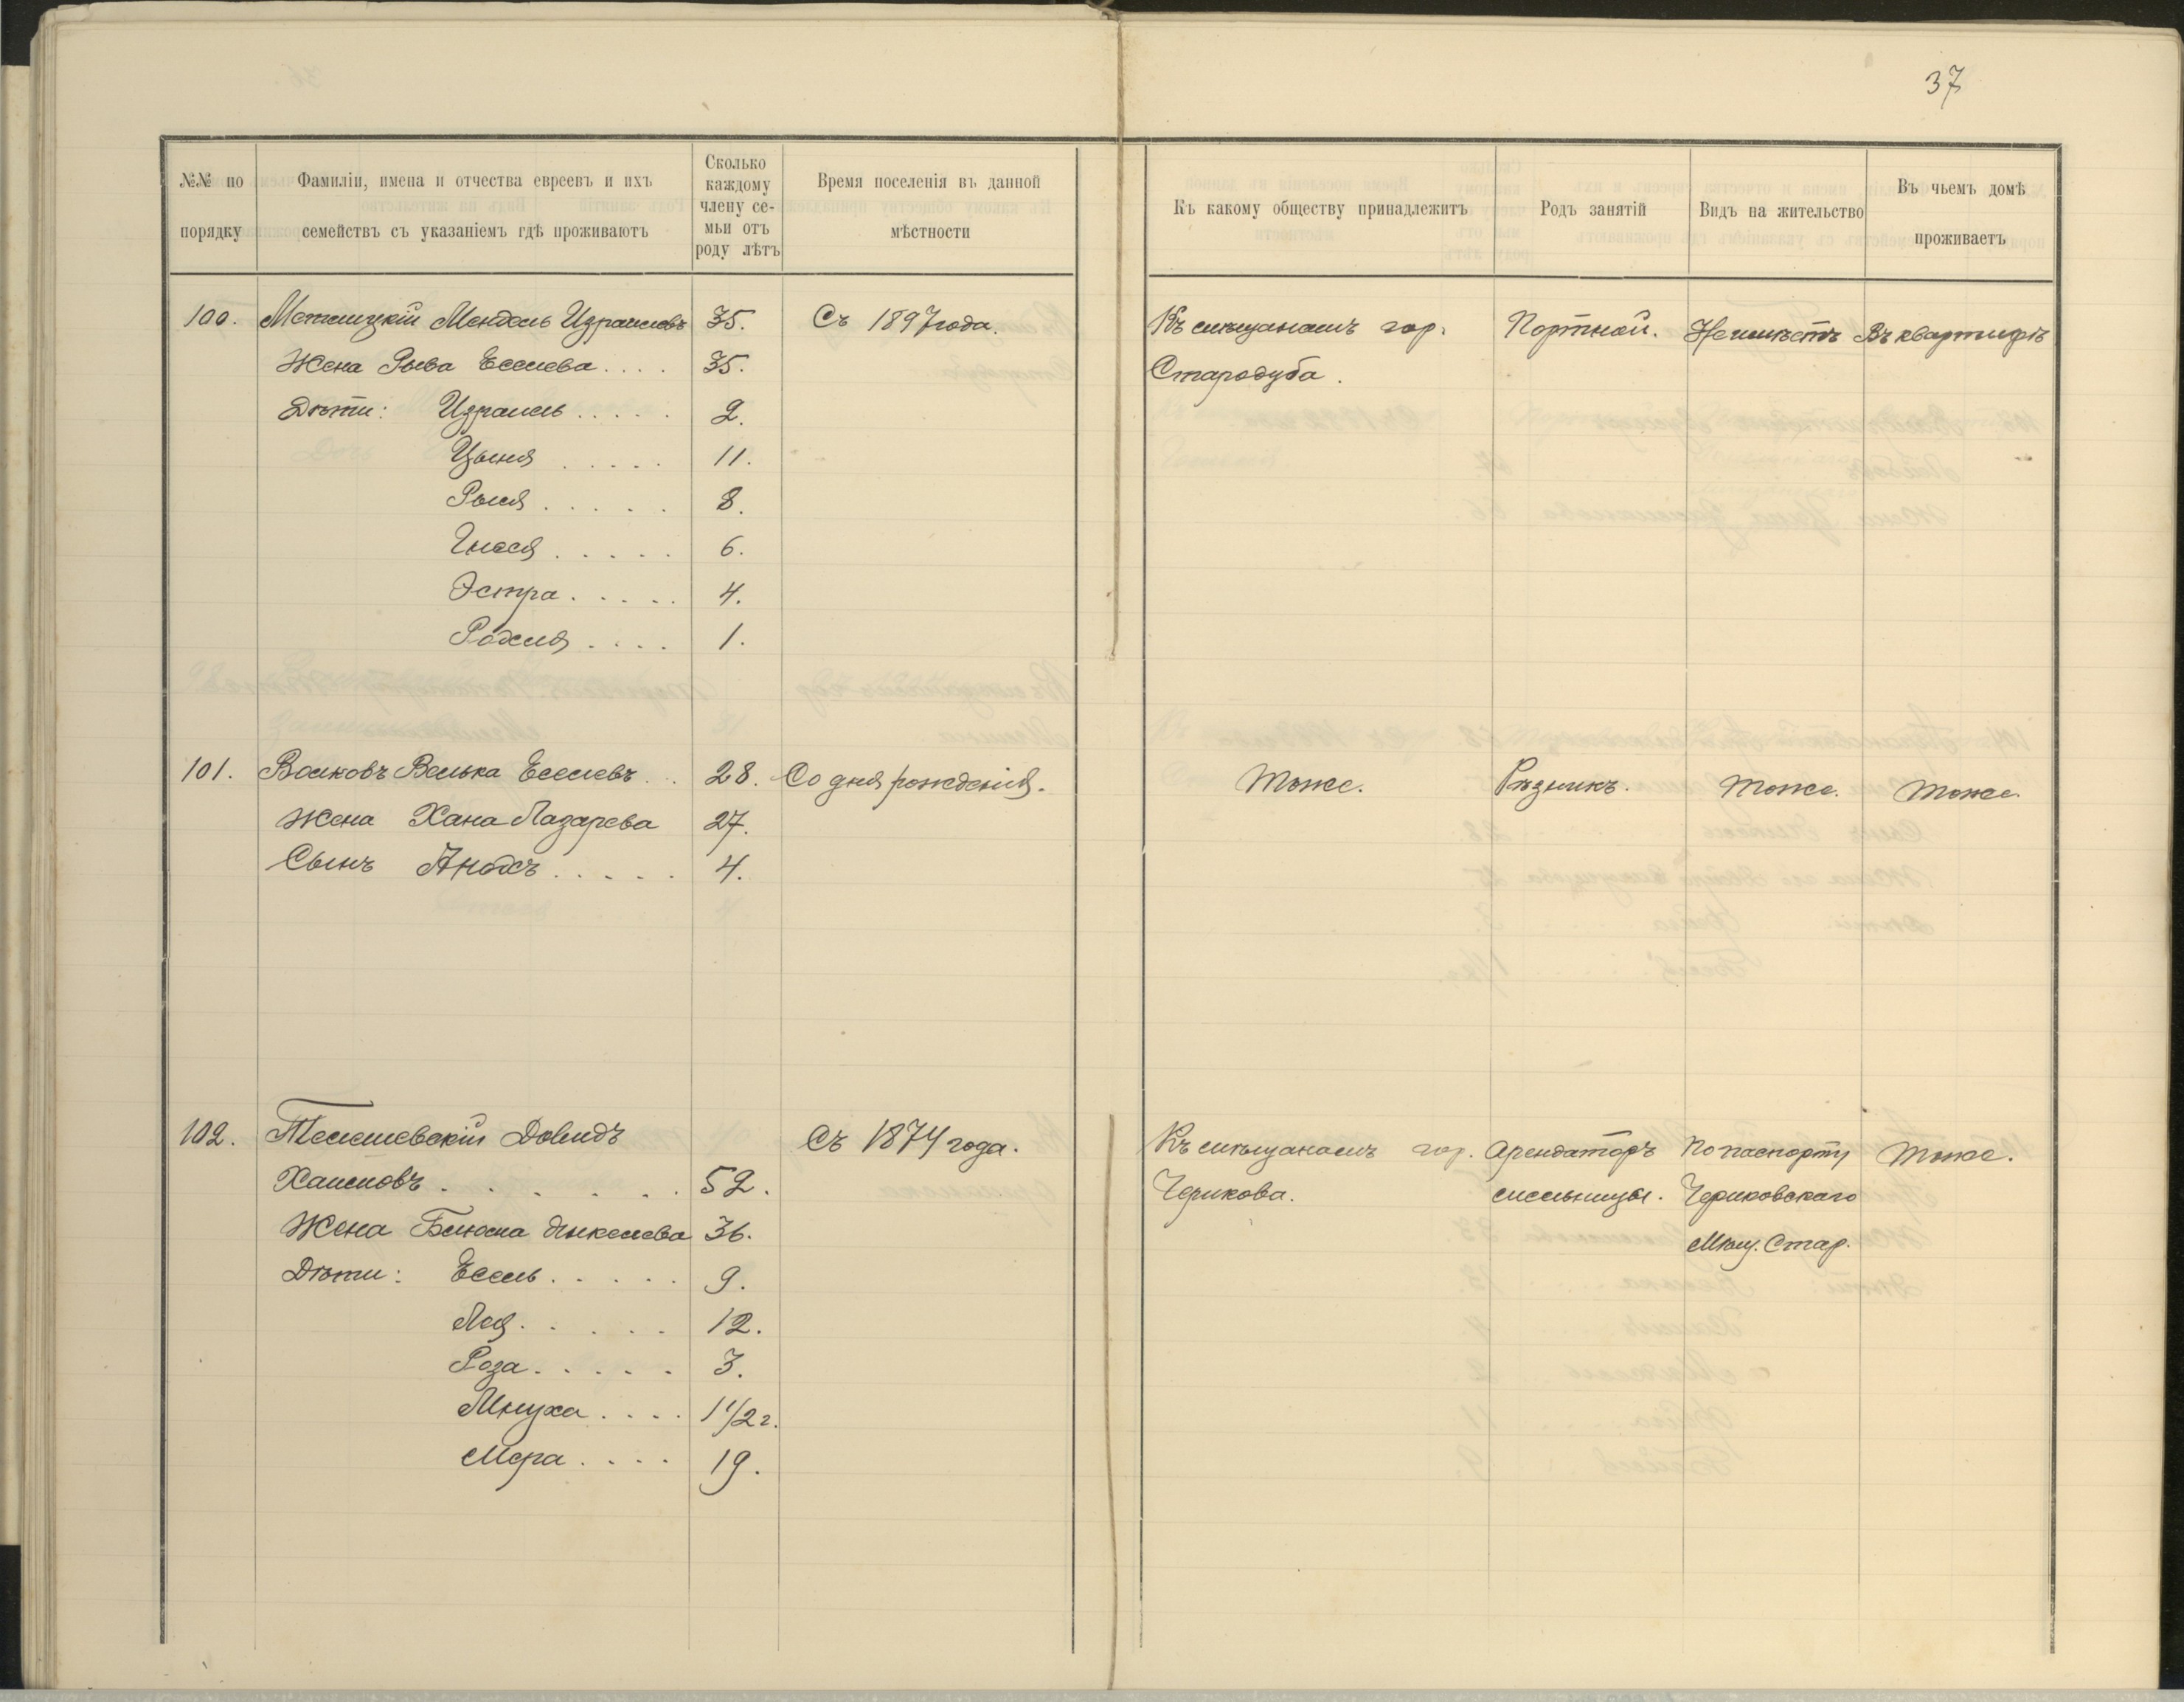 37
№№ по порядку
Фамиліи, имена и отчества евреевъ и ихъ семействъ съ указаніемъ гдѣ проживаютъ
Сколько каждому члену семьи отъ роду лѣтъ
Время поселенія въ данной мѣстности
Къ какому обществу принадлежитъ
Родъ занятій
Видъ на жительство
Въ чьемъ домѣ проживаетъ
100. Мендель Израилевъ 35. Съ 1897 года. Къ мѣщанамъ гор. Портной. Неимѣетъ Въ квартирѣ
Жена Рыва Еселева.... 35. Стародуба.
Дѣти: Израиль..... 2.
Цыпа..... 11.
..... 8.
..... 6.
Эстра..... 4.
.... 1.
101. Волковъ Велька Еселевъ.. 28. Со дня рожденія. Тоже. Рѣзникъ. Тоже. Тоже.
Жена Хана Лазарева 27.
Сынъ ..... 4.
102. Телешевскій Довидъ Съ 1874 года. Къ мѣщанамъ гор. Арендаторъ По паспорту Тоже.
Хаимовъ...... 52. Черикова. мельницы. Чериковскаго
Жена Блюма 36. Мѣщ. Стар.
Дѣти: Есель..... 9.
Лея..... 12.
Роза..... 3.
Мнуха.... 1 1/2 г.
Мера.... 19.